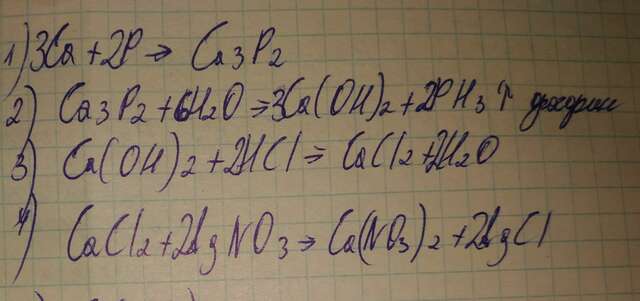 1) 3Ca + 2P → Ca3P2
2) Ca3P2 + 6H2O → 3Ca(OH)2 + 2PH3↑ фосфин
3) Ca(OH)2 + 2HCl = CaCl2 + 2H2O
4) CaCl2 + 2AgNO3 → Ca(NO3)2 + 2AgCl